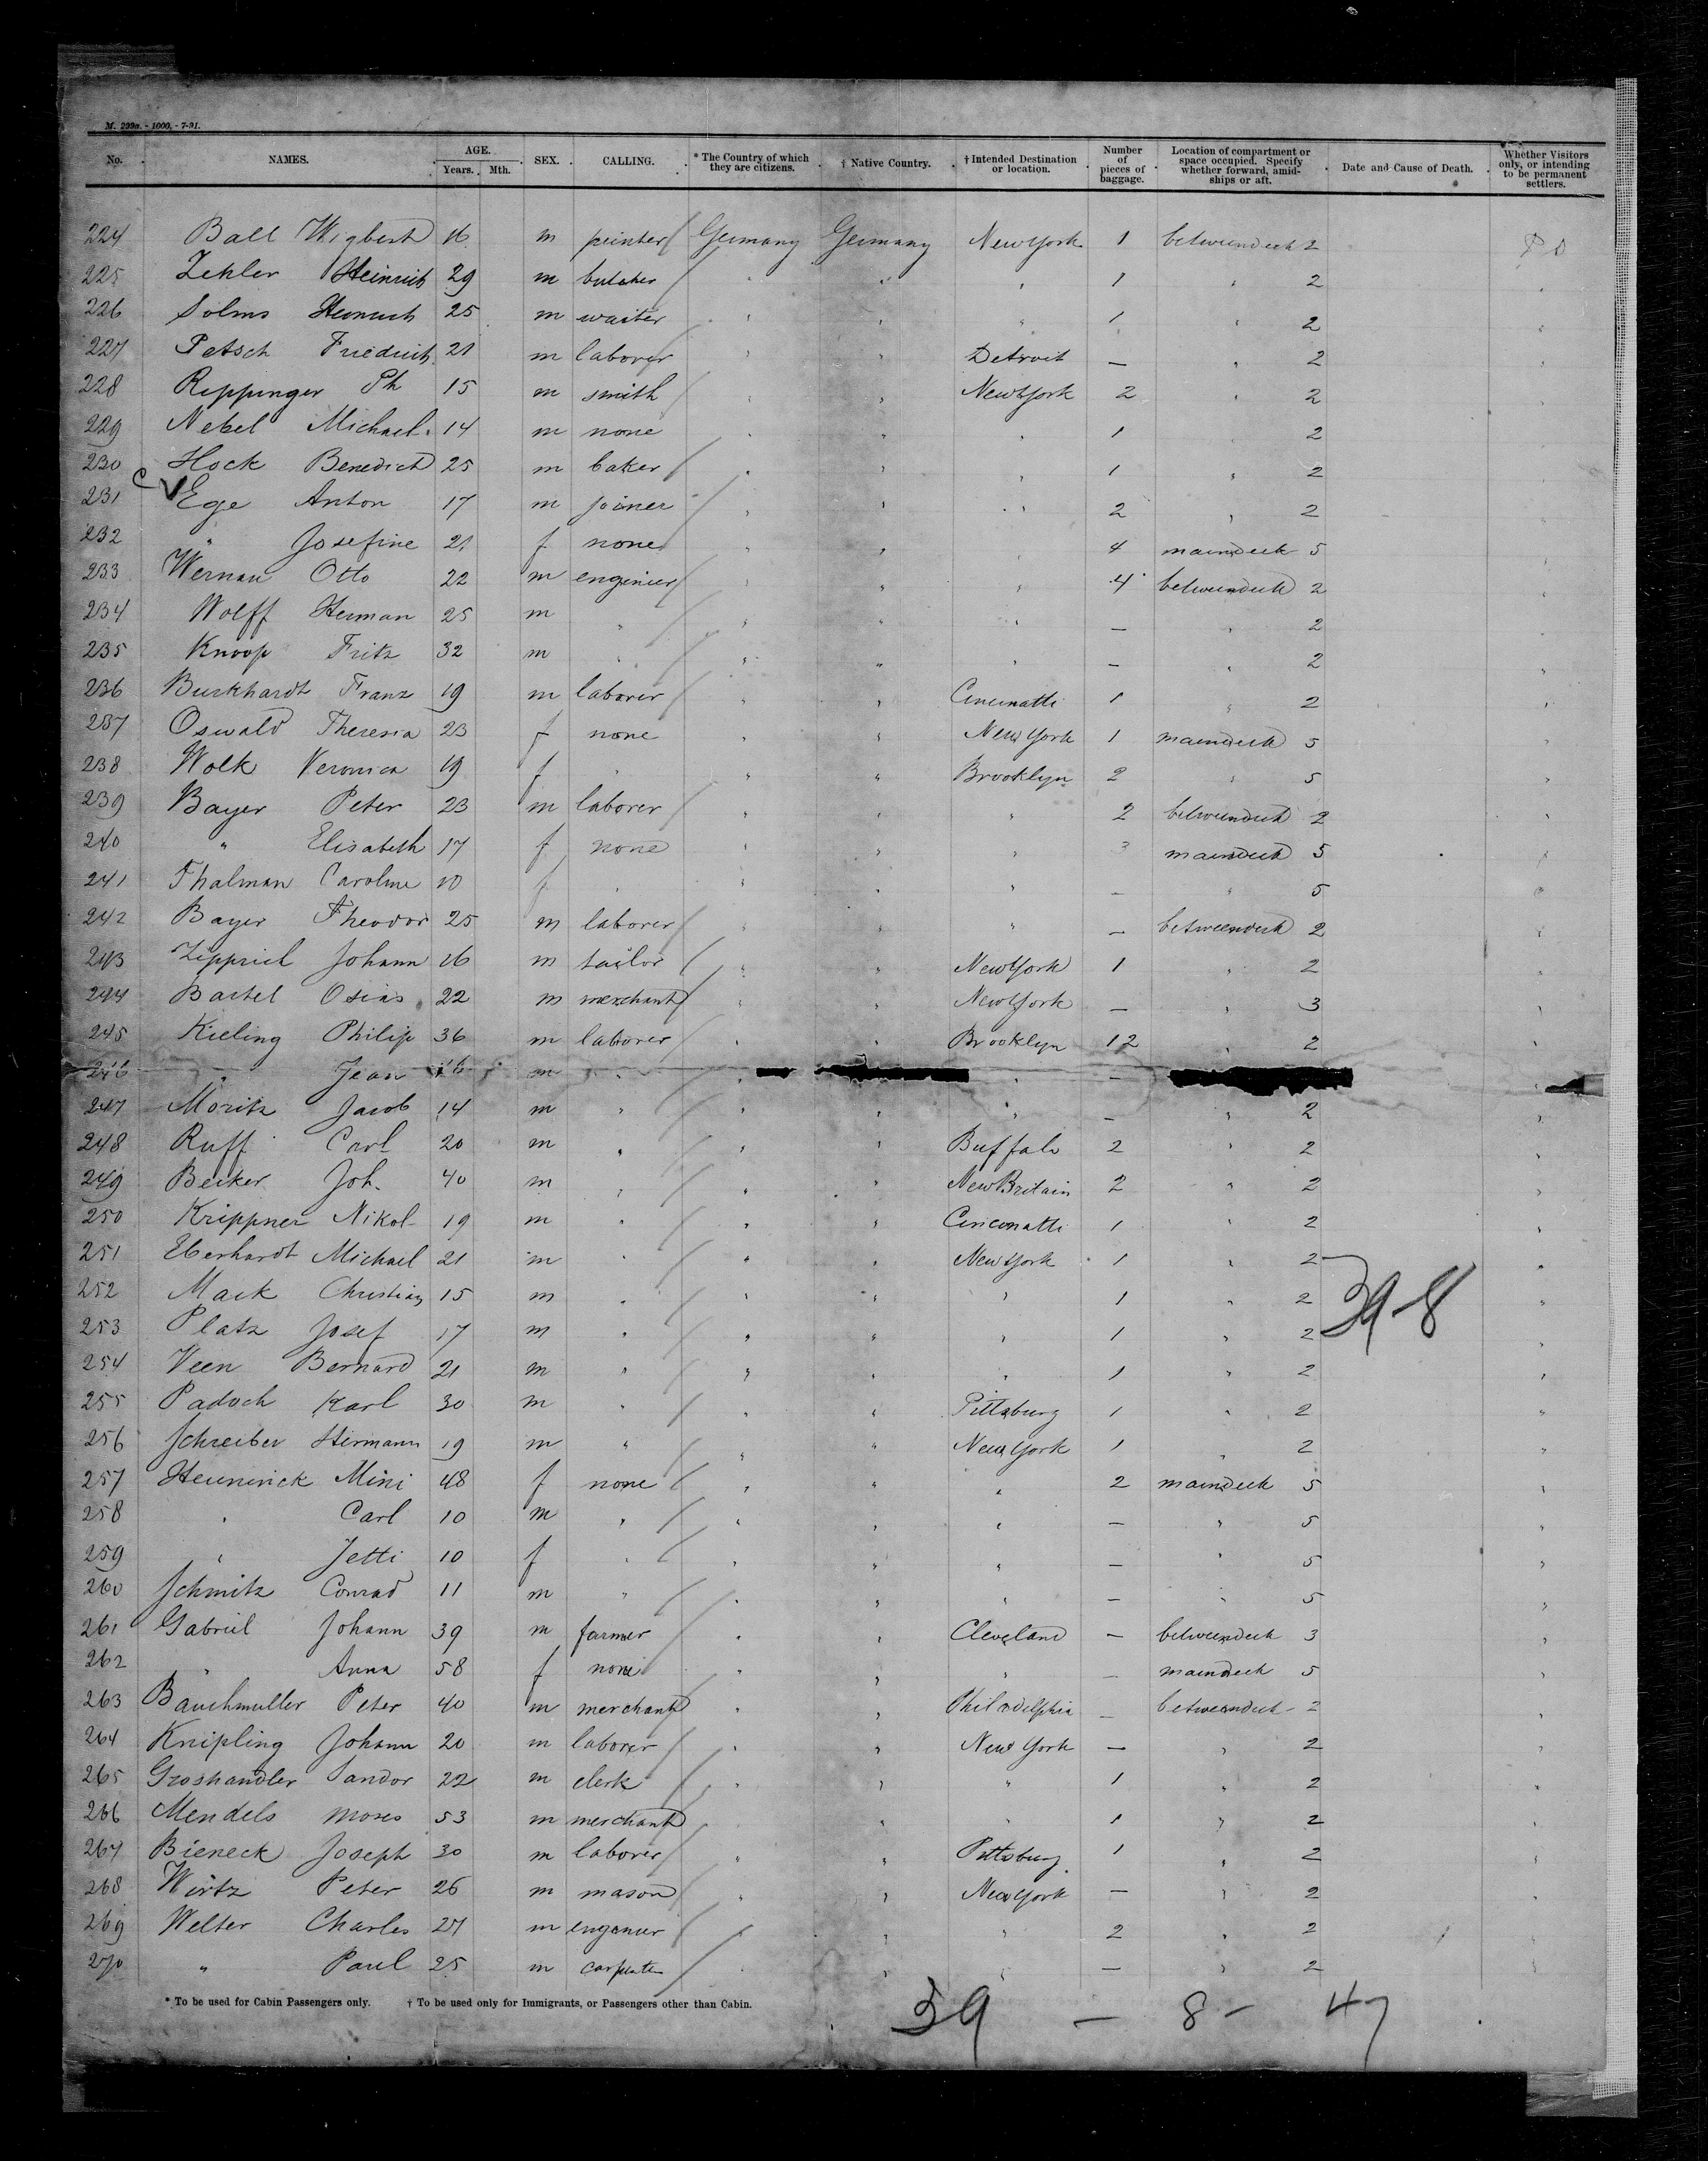 M. 299a. - 1000. - 7-91.
No. NAMES. AGE. Years. Mth. SEX. CALLING. * The Country of which they are citizens. † Native Country. † Intended Destination or location. Number of pieces of baggage. Location of compartment or space occupied. Specify whether forward, amidships or aft. Date and Cause of Death. Whether Visitors only, or intending to be permanent settlers.
224 Ball Wigbert 16 m printer Germany Germany New York 1 betweendeck 2
225 Zehler Heinrich 29 m butcher " " " 1 " 2 "
226 Solms Heinrich 25 m waiter " " " 1 " 2 "
227 Petsch Friedrich 21 m laborer " " Detroit — " 2 "
228 Reppinger Ph 15 m smith " " New York 2 " 2 "
229 Nebel Michael 14 m none " " " 1 " 2 "
230 Hock Benedict 25 m baker " " " 1 " 2 "
231 Ege Anton 17 m joiner " " " 2 " 2 "
232 " Josefine 21 f none " " " 4 maindeck 5 "
233 Wernau Otto 22 m enginier " " " 4 betweendeck 2 "
234 Wolff Herman 25 m " " " " — " 2 "
235 Knoop Fritz 32 m " " " " — " 2 "
236 Burkhardt Franz 19 m laborer " " Cincinatti 1 " 2 "
237 Oswald Theresia 23 f none " " New York 1 maindeck 5 "
238 Wolk Veronica 19 f " " " Brooklyn 2 " 5 "
239 Bayer Peter 23 m laborer " " " 2 betweendeck 2 "
240 " Elisabeth 17 f none " " " 3 maindeck 5 "
241 Thalman Caroline 10 f " " " " — " 5 "
242 Bayer Theodor 25 m laborer " " " — betweendeck 2 "
243 Zippriel Johann 16 m tailor " " New York 1 " 2 "
244 Bartel Osias 22 m merchant " " New York — " 3 "
245 Kieling Philip 36 m laborer " " Brooklyn 12 " 2 "
246 " Jean 16 m " " " —
247 Moritz Jacob 14 m " " " " — " 2 "
248 Ruff Carl 20 m " " " Buffalo 2 " 2 "
249 Becker Joh. 40 m " " " New Britain 2 " 2 "
250 Krippner Nikol 19 m " " " Cinconatti 1 " 2 "
251 Eberhardt Michael 21 m " " " New York 1 " 2 "
252 Mack Christian 15 m " " " " 1 " 2 "
39-8
253 Platz Josef 17 m " " " " 1 " 2 "
254 Veen Bernard 21 m " " " " 1 " 2 "
255 Padoch Karl 30 m " " " Pittsburg 1 " 2 "
256 Schreiber Hermann 19 m " " " New York 1 " 2 "
257 Heunerick Mini 48 f none " " " 2 maindeck 5 "
258 " Carl 10 m " " " " — " 5 "
259 " Jetti 10 f " " " " — " 5 "
260 Schmitz Conrad 11 m " " " " — " 5 "
261 Gabriel Johann 39 m farmer " " Cleveland — betweendeck 3 "
262 " Anna 58 f none " " " — maindeck 5 "
263 Bauchmuller Peter 40 m merchant " " Philadelphia — betweendeck 2 "
264 Knipling Johann 20 m laborer " " New York — " 2 "
265 Groshandler Sandor 22 m clerk " " " 1 " 2 "
266 Mendels Moses 53 m merchant " " " 1 " 2 "
267 Bieneck Joseph 30 m laborer " " Pittsburg 1 " 2 "
268 Wirtz Peter 26 m mason " " New York — " 2 "
269 Welter Charles 27 m enginier " " " 2 " 2 "
270 " Paul 25 m carpenter " " " — " 2 "
* To be used for Cabin Passengers only. † To be used only for Immigrants, or Passengers other than Cabin.
39 — 8 - 47